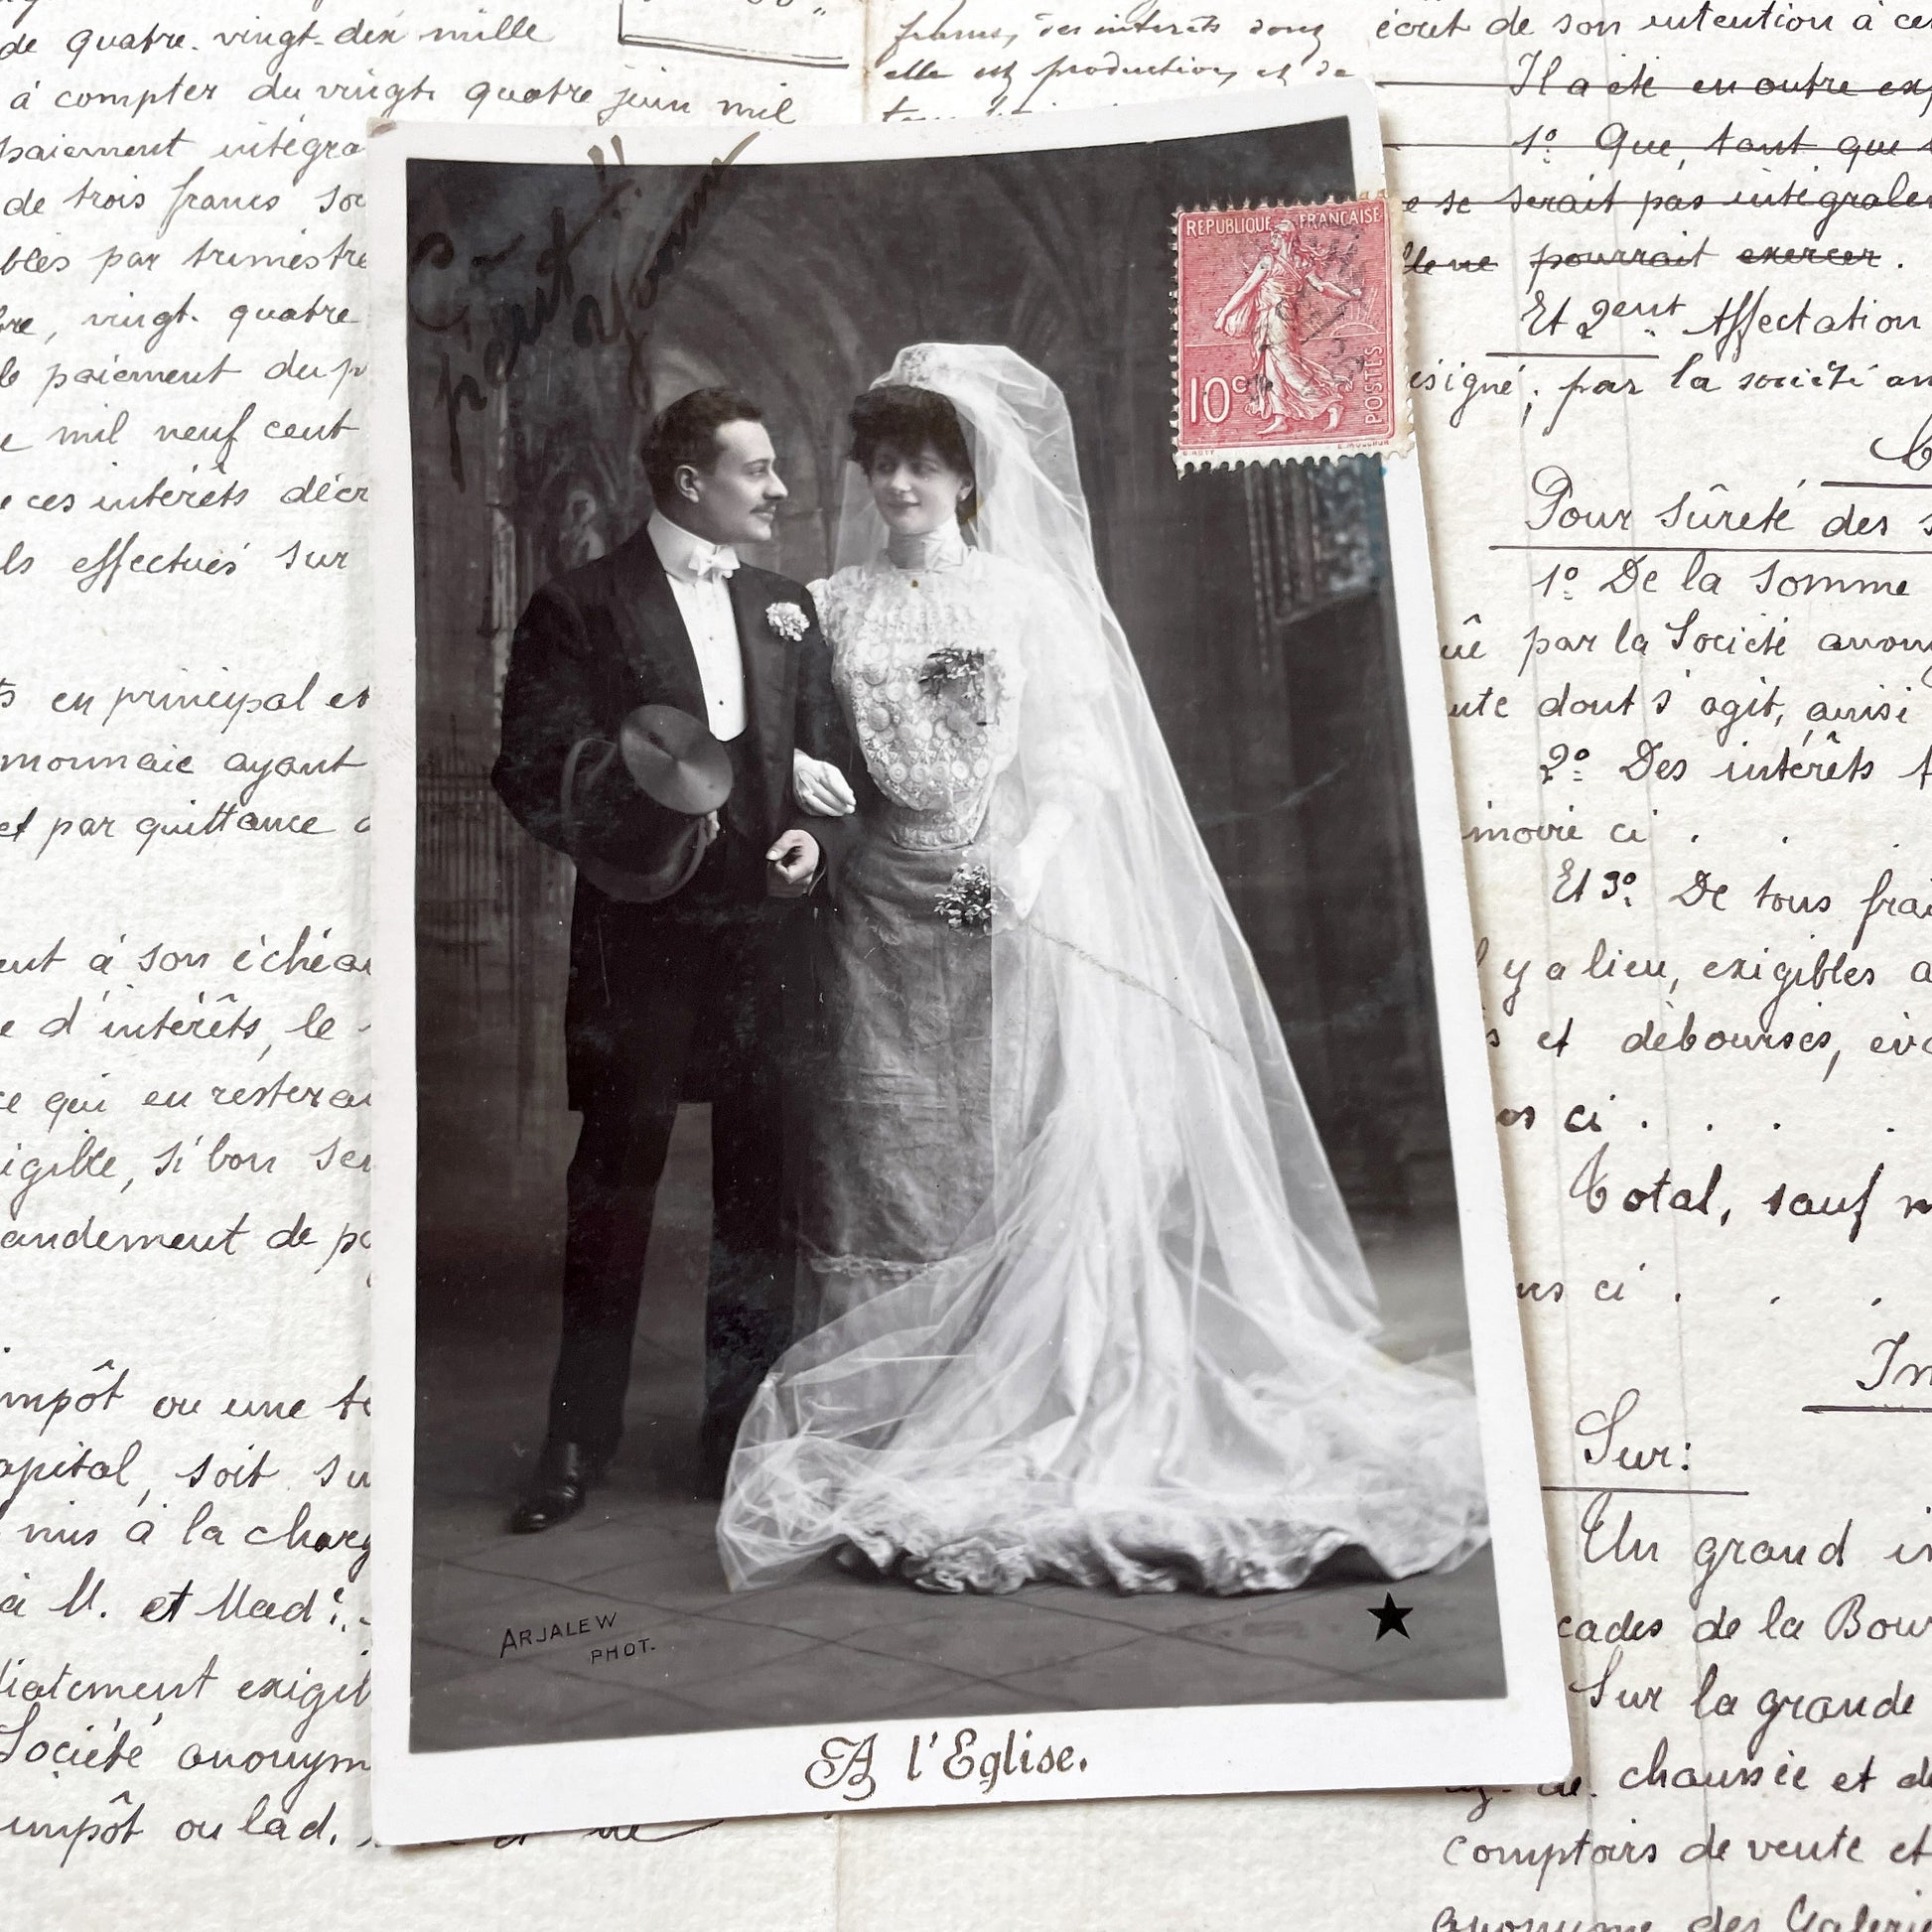 de quatre-vingt-dix mille
à compter du vingt quatre juin mil
paiement intégra
de trois francs soi
bles par trimestre
bre, vingt-quatre
le paiement du p
mil neuf cent
ces intérêts décr
ls effectués sur
en principal et
monnaie ayant
et par quittance
ent à son échéan
e d'intérêts, le
ce qui en resterai
igible, si bon sem
andement de pa
impôt ou une ta
apital, soit su
mis à la charg
à M. et Mad
diatement exigib
Société anonym
impôt ou lad.
francs, des intérêts dont
elle est production, et de
REPUBLIQUE FRANÇAISE
10c
POSTES
ARJALEW
PHOT.
A l'Eglise.
écrit de son intention à ce
Il a été en outre exp
1º Que, tant que
e se serait pas intégralem
pourrait exercer.
Et 2ent Affectation
ésigné, par la société an
Pour sûreté des s
1º De la somme
par la Société anony
ute dont s'agit, ainsi
2º Des intérêts
moire ci . . .
Et 3º De tous frai
y a lieu, exigibles a
et débourses, éva
ci . . . .
Total, sauf m
ci . . .
Sur:
Un grand
cades de la Bour
Sur la grande
chaussée et de
comptoirs de vente et
anonyme des Galeries